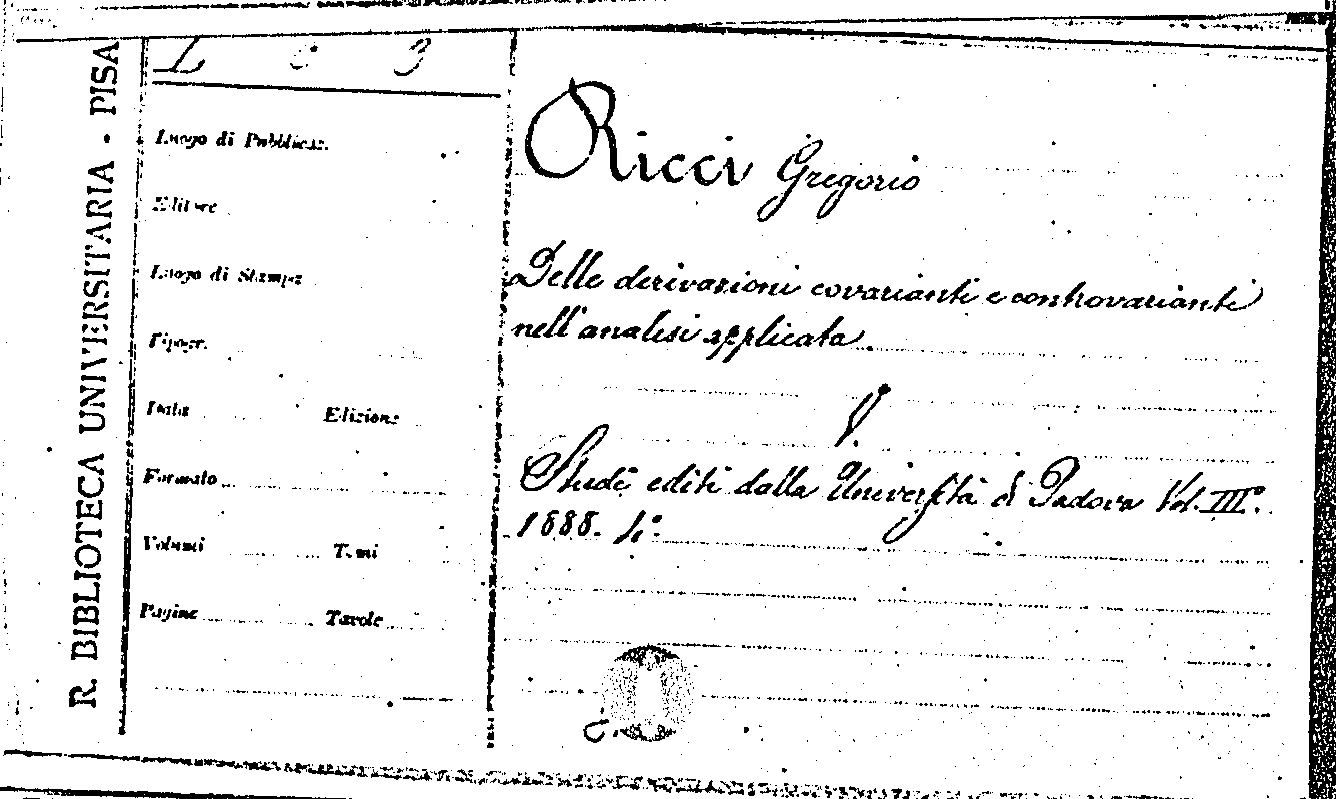 R. BIBLIOTECA UNIVERSITARIA - PISA
L c 3
Luogo di Pubblicaz.
Editore
Luogo di Stampa
Tipogr.
Data Edizione
Formato
Volumi Tomi
Pagine Tavole
Ricci Gregorio
Delle derivazioni covarianti e controvarianti
nell'analisi applicata.
V.
Studî editi dalla Università di Padova Vol. III°.
1888. 4°.